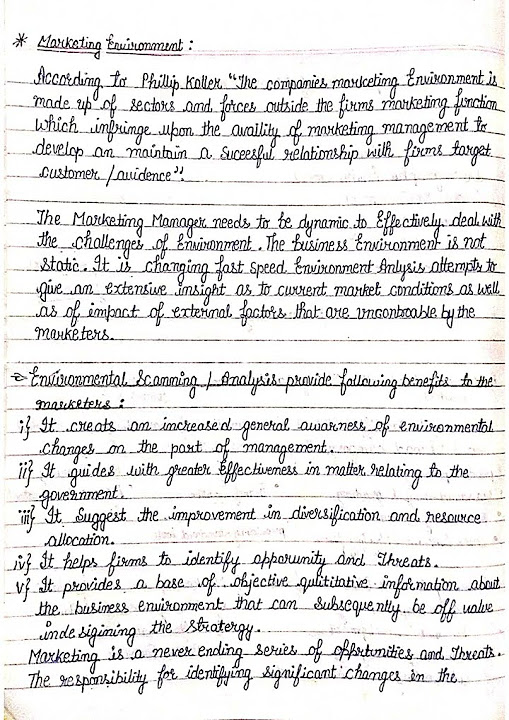 * Marketing Environment :
According to Phillip Koller "The companies marketing Environment is
made up of sectors and forces outside the firms marketing function
which infringe upon the availity of marketing management to
develop an maintain a Sucessful relationship with firms target
customer / auidence".
The Marketing Manager needs to be dynamic to Effectively deal with
the challenges of Environment. The Business Environment is not
Static. It is changing fast speed Environment Anlysis attempts to
give an extensive insight as to current market conditions as well
as of impact of external factors that are uncontroable by the
marketers.
⇒ Environmental Scanning / Analysis provide following benefits to the
marketers :
i} It creats an increased general awarness of environmental
changes on the part of management.
ii} It guides with greater Effectiveness in matter relating to the
government.
iii} It Suggest the improvement in diversification and resource
allocation.
iv} It helps firms to identify opporunity and Threats.
v} It provides a base of objective qulititative information about
the business environment that can Subsequently be off value
in designing the Stratergy.
Marketing is a never ending series of opprtunities and Threats.
The responsibility for identifying significant changes in the